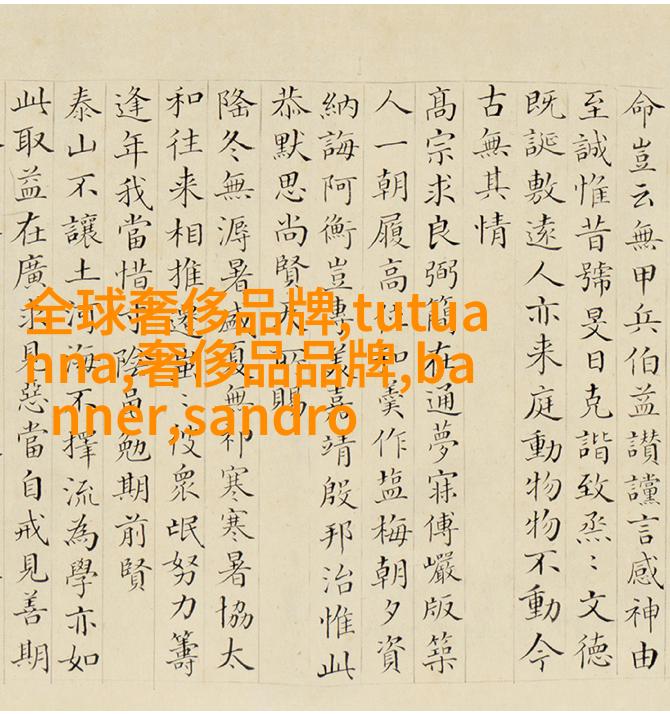 命豈云無甲兵伯益讃讜言感神由
至誠惟昔號旻日克諧致烝〻文德
既誕敷遠人亦来庭動物物不動今
古無其情
高宗求良弼簡在通夢寐傅巖版築
人一朝履高位和羹作塩梅朝夕資
納誨阿衡豈專美嘉靖殷邦治惟此
恭默思尚賢賜
隆冬無溽暑盛夏無祁寒寒暑協太
和往来相推遷蚩〻彼衆氓努力籌
逢年我當惜寸陰黽勉期前賢
泰山不讓土河海不擇流為學亦如
此取益在廣求見惡當自戒見善期
全球奢侈品牌,tutua
nna,奢侈品品牌,ba
nner,sandro